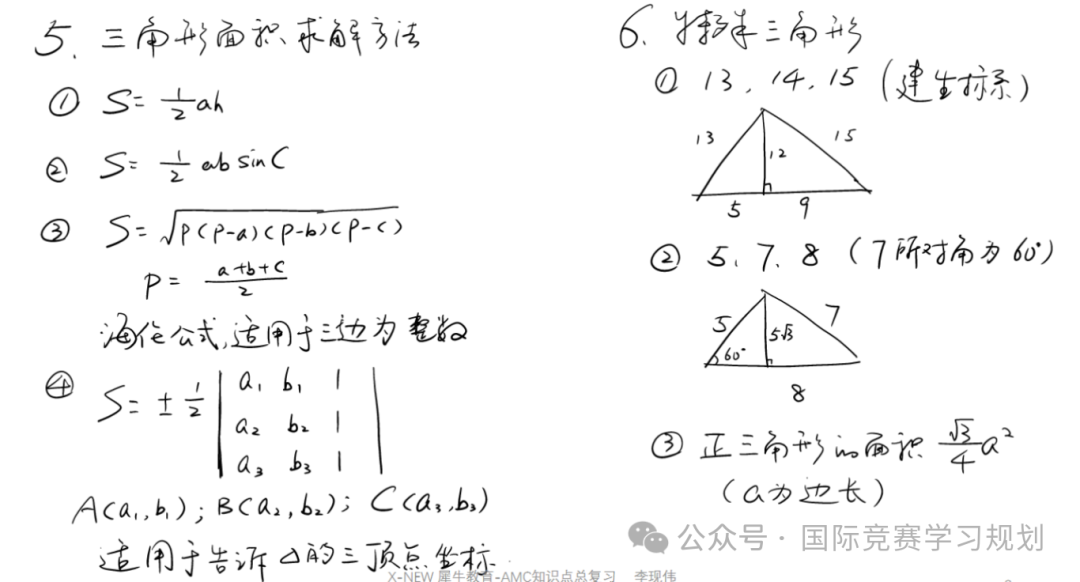 5. 三角形面积求解方法
① S= 1/2 ah
② S= 1/2 ab sinC
③ S= √P(P-a)(P-b)(P-c)
P= a+b+c/2
海伦公式,适用于三边为整数
④ S= ± 1/2 | a₁ b₁ 1 |
a₂ b₂ 1
a₃ b₃ 1
A(a₁,b₁); B(a₂,b₂); C(a₃,b₃)
适用于告诉△的三顶点坐标.
6. 特殊三角形
① 13, 14, 15 (建坐标系)
13
12
15
5
9
② 5、7、8 (7所对角为60°)
5
5√3
7
60°
8
③ 正三角形的面积 √3/4 a²
(a为边长)
公众号·国际竞赛学习规划
X-NEW 犀牛教育-AMC知识点总复习 李现伟